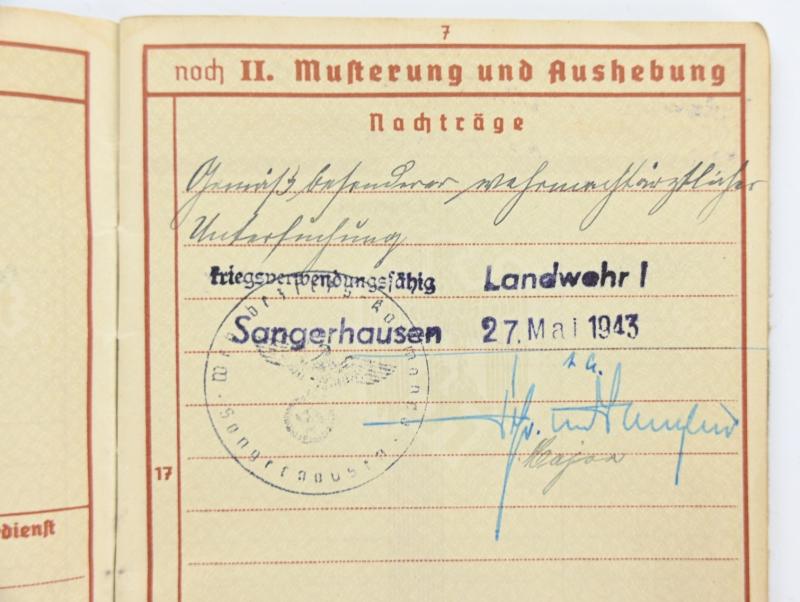 7
noch II. Musterung und Aushebung
Nachträge
Gemäß besonderer wehrmachtärztlicher
Untersuchung
kriegsverwendungsfähig Landwehr I
Sangerhausen 27. Mai 1943
Major
17
dienst